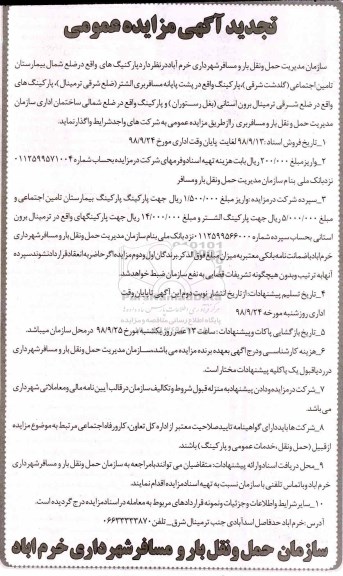 تجدید آگهی مزایده عمومی
سازمان مدیریت حمل ونقل بار و مسافر شهرداری خرم آباد در نظر دارد پارکینگ های واقع در ضلع شمال بیمارستان
تامین اجتماعی (گلدشت شرقی)، پارکینگ واقع در پشت پایانه مسافربری الشتر (ضلع شرقی ترمینال)، پارکینگ های
واقع در ضلع شرقی ترمینال برون استانی (بغل رستوران) و پارکینگ واقع در ضلع شمالی ساختمان اداری سازمان
مدیریت حمل و نقل بار و مسافربری را از طریق مزایده عمومی به شرکت های واجد شرایط واگذار نماید.
۱_تاریخ فروش اسناد: ۹۸/۹/۱۳ لغایت پایان وقت اداری مورخ ۹۸/۹/۲۴
۲_واریز مبلغ ۲۰۰/۰۰۰ ریال بابت هزینه تهیه اسناد و فرمهای شرکت در مزایده بحساب شماره ۰۱۱۲۵۹۹۵۷۱۰۰۴
نزد بانک ملی بنام سازمان مدیریت حمل ونقل بار و مسافر
۳_سپرده شرکت در مزایده: واریز مبلغ ۱/۵۰۰/۰۰۰ ریال جهت پارکینگ پارکینگ بیمارستان تامین اجتماعی و
مبلغ ۵/۰۰۰/۰۰۰ ریال جهت پارکینگ الشتر و مبلغ ۱۴/۰۰۰/۰۰۰ ریال جهت پارکینگهای واقع در ترمینال برون
استانی بحساب سپرده شماره ۰۱۱۲۵۹۹۵۶۶۰۰۰ نزد بانک ملی بنام سازمان مدیریت حمل ونقل بار و مسافر شهرداری
خرم آباد یا ضمانت نامه بانکی معتبر به میزان مبلغ فوق الذکر. برندگان اول و دوم مزایده اگر حاضر به انعقاد قرارداد نشوند سپرده
آنها به ترتیب و بدون هیچگونه تشریفات قضایی به نفع سازمان ضبط خواهد شد.
۴_تاریخ تسلیم پیشنهادات: از تاریخ انتشار نوبت دوم این آگهی تا پایان وقت
اداری روز شنبه مورخه ۹۸/۹/۲۴
۵_تاریخ بازگشایی پاکات و پیشنهادات: ساعت ۱۳ عصر روز یکشنبه مورخ ۹۸/۹/۲۵ در محل سازمان میباشد.
۶_هزینه کارشناسی و درج آگهی بعهده برنده مزایده می باشد، سازمان مدیریت حمل ونقل بار و مسافر شهرداری
در رد یا قبول یک یا کلیه پیشنهادات مختار است.
۷_شرکت در مزایده و دادن پیشنهاد به منزله قبول شروط و تکالیف سازمان در قالب آیین نامه مالی و معاملاتی شهرداری
می باشد.
۸_شرکت ها باید دارای گواهینامه تایید صلاحیت معتبر از اداره کل تعاون، کار و رفاه اجتماعی مرتبط به موضوع مزایده
از قبیل (حمل ونقل، خدمات عمومی و پارکینگ) باشند.
۹_محل دریافت اسناد و ارائه پیشنهادات: متقاضیان می توانند با مراجعه به سازمان حمل ونقل بار و مسافر شهرداری
خرم آباد و یا تماس تلفنی با سازمان نسبت به تهیه اسناد مزایده اقدام نمایند.
۱۰_سایر شرایط و اطلاعات و جزئیات و نمونه قراردادهای مربوط به معامله در اسناد مزایده درج گردیده است.
آدرس: خرم آباد حدفاصل اسدآبادی جنب ترمینال شرق_تلفن ۰۶۶۳۳۳۳۳۸۷۰
سازمان حمل ونقل بار و مسافر شهرداری خرم اباد